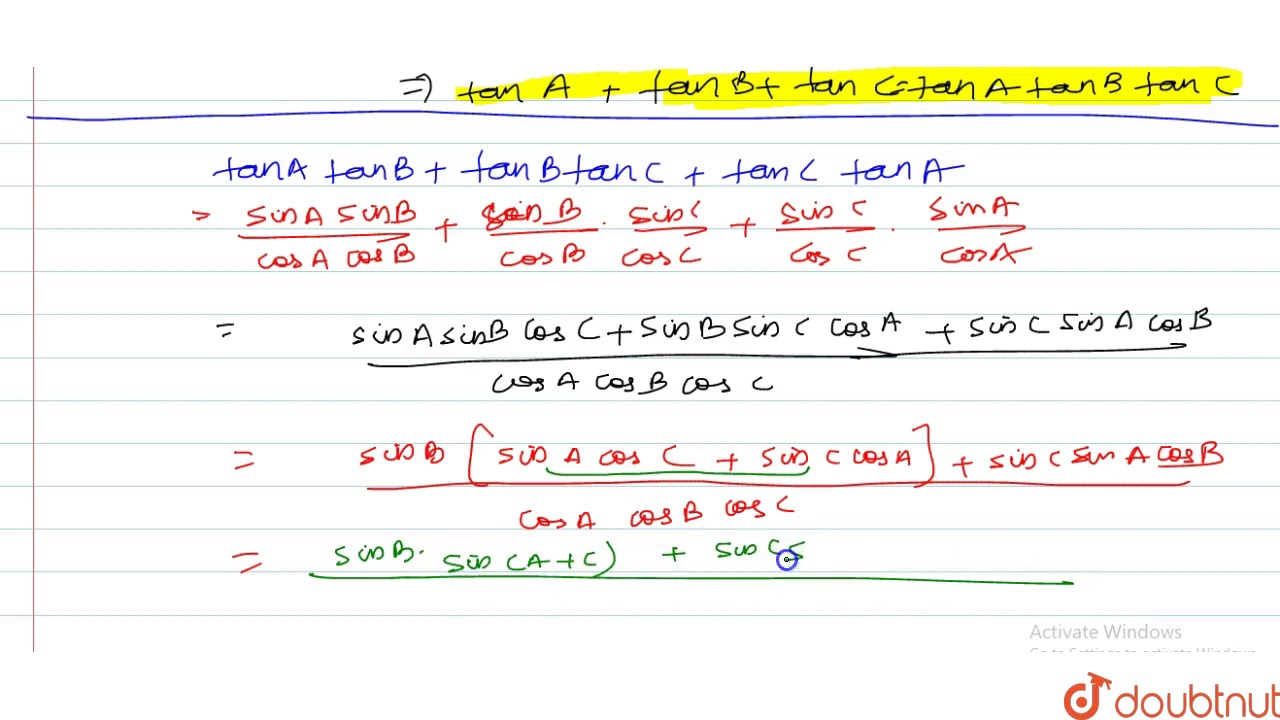 ⇒ tan A + tan B + tan C = tan A tan B tan C
tan A tan B + tan B tan C + tan C tan A
> sin A sin B / cos A cos B + sin B / cos B . sin C / cos C + sin C / cos C . sin A / cos A
= sin A sin B cos C + sin B sin C cos A + sin C sin A cos B
cos A cos B cos C
= sin B [sin A cos C + sin C cos A] + sin C sin A cos B
cos A cos B cos C
= sin B. sin (A + C) + sin C s
Activate Windows
Go to Settings to activate Windows.
doubtnut